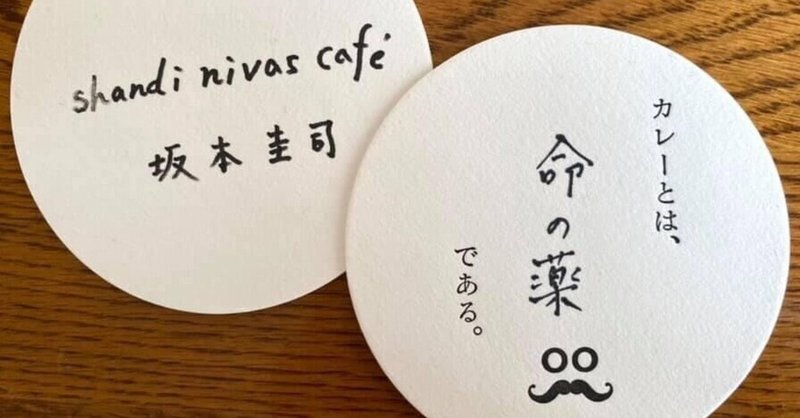 shandi nivas café
坂本圭司
カレーとは、
命の薬
である。